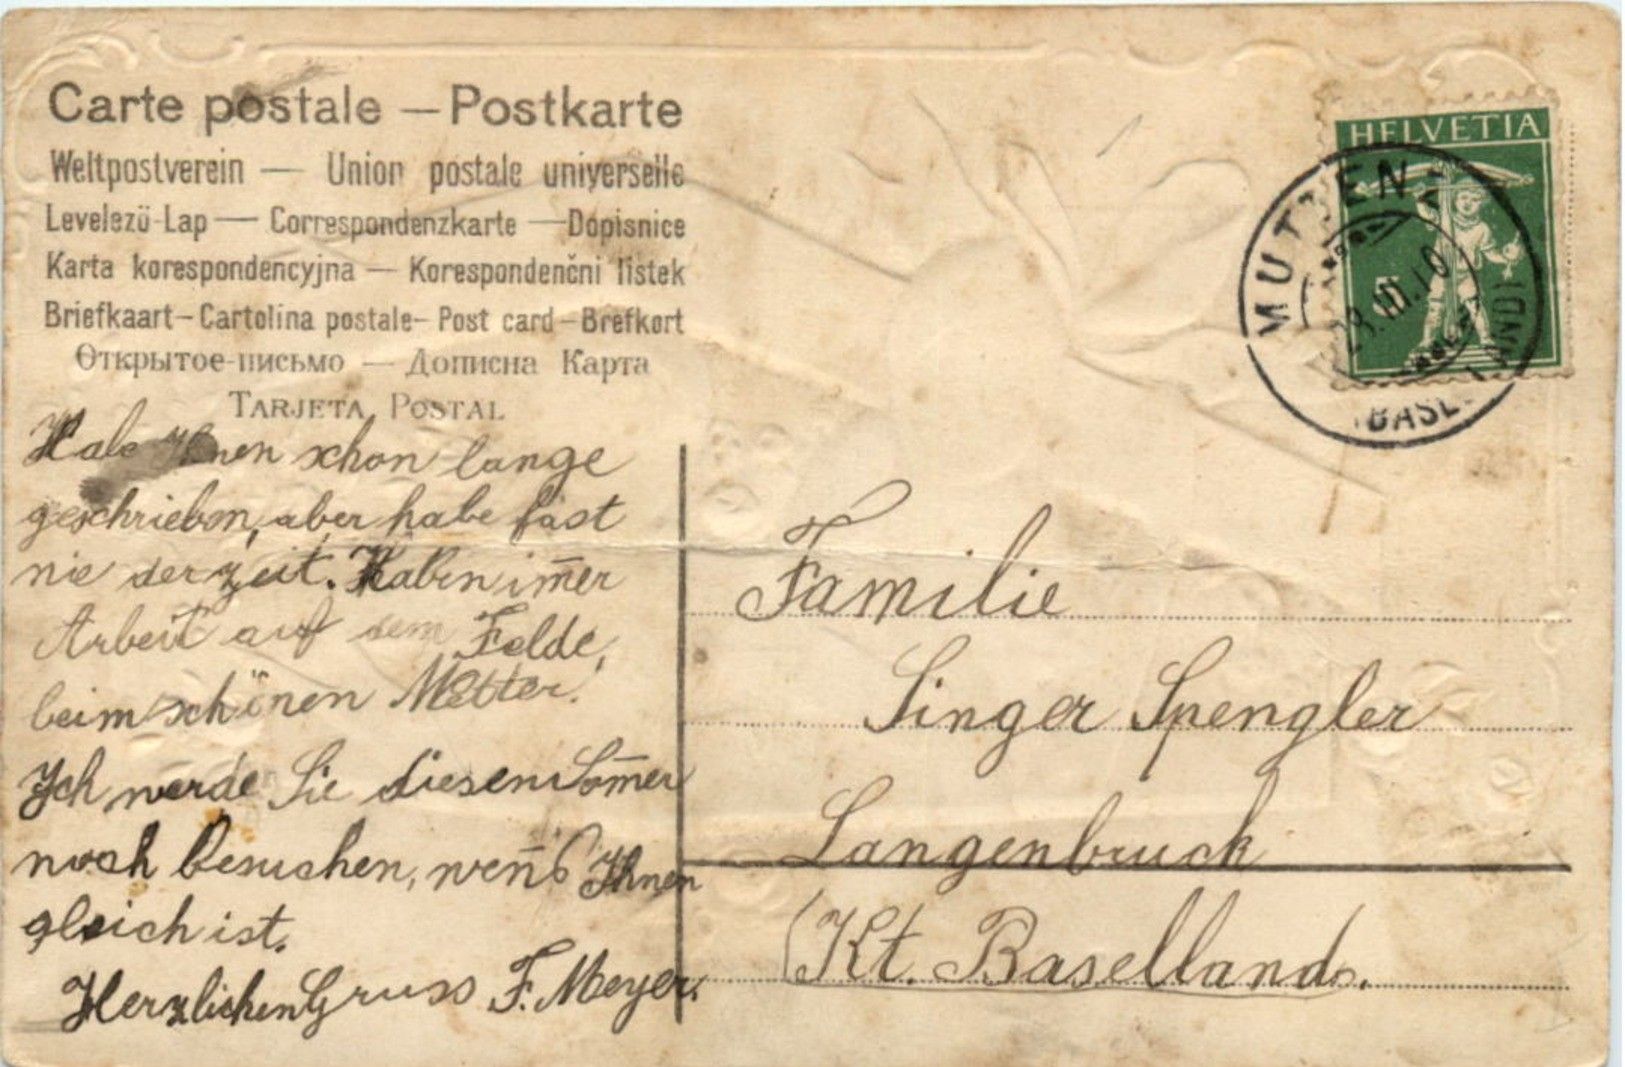 Carte postale — Postkarte
Weltpostverein — Union postale universelle
Levelezö-Lap — Correspondenzkarte — Dopisnice
Karta korespondencyjna — Korespondenčni listek
Briefkaart — Cartolina postale — Post card — Brefkort
Открытое-письмо — Дописна Карта
TARJETA POSTAL
Habe Ihnen schon lange
geschrieben, aber habe fast
nie der zeit. Haben im̄er
Arbeit auf dem Felde,
beim schönen Wetter.
Ich werde Sie diesen Som̄er
noch besuchen, wen̄s Ihnen
gleich ist.
Herzlichen Gruss F. Meyer.
HELVETIA
MUTTENZ
29.VII.10
(BASEL LAND)
Familie
Singer Spengler
Langenbruck
(Kt. Baselland.